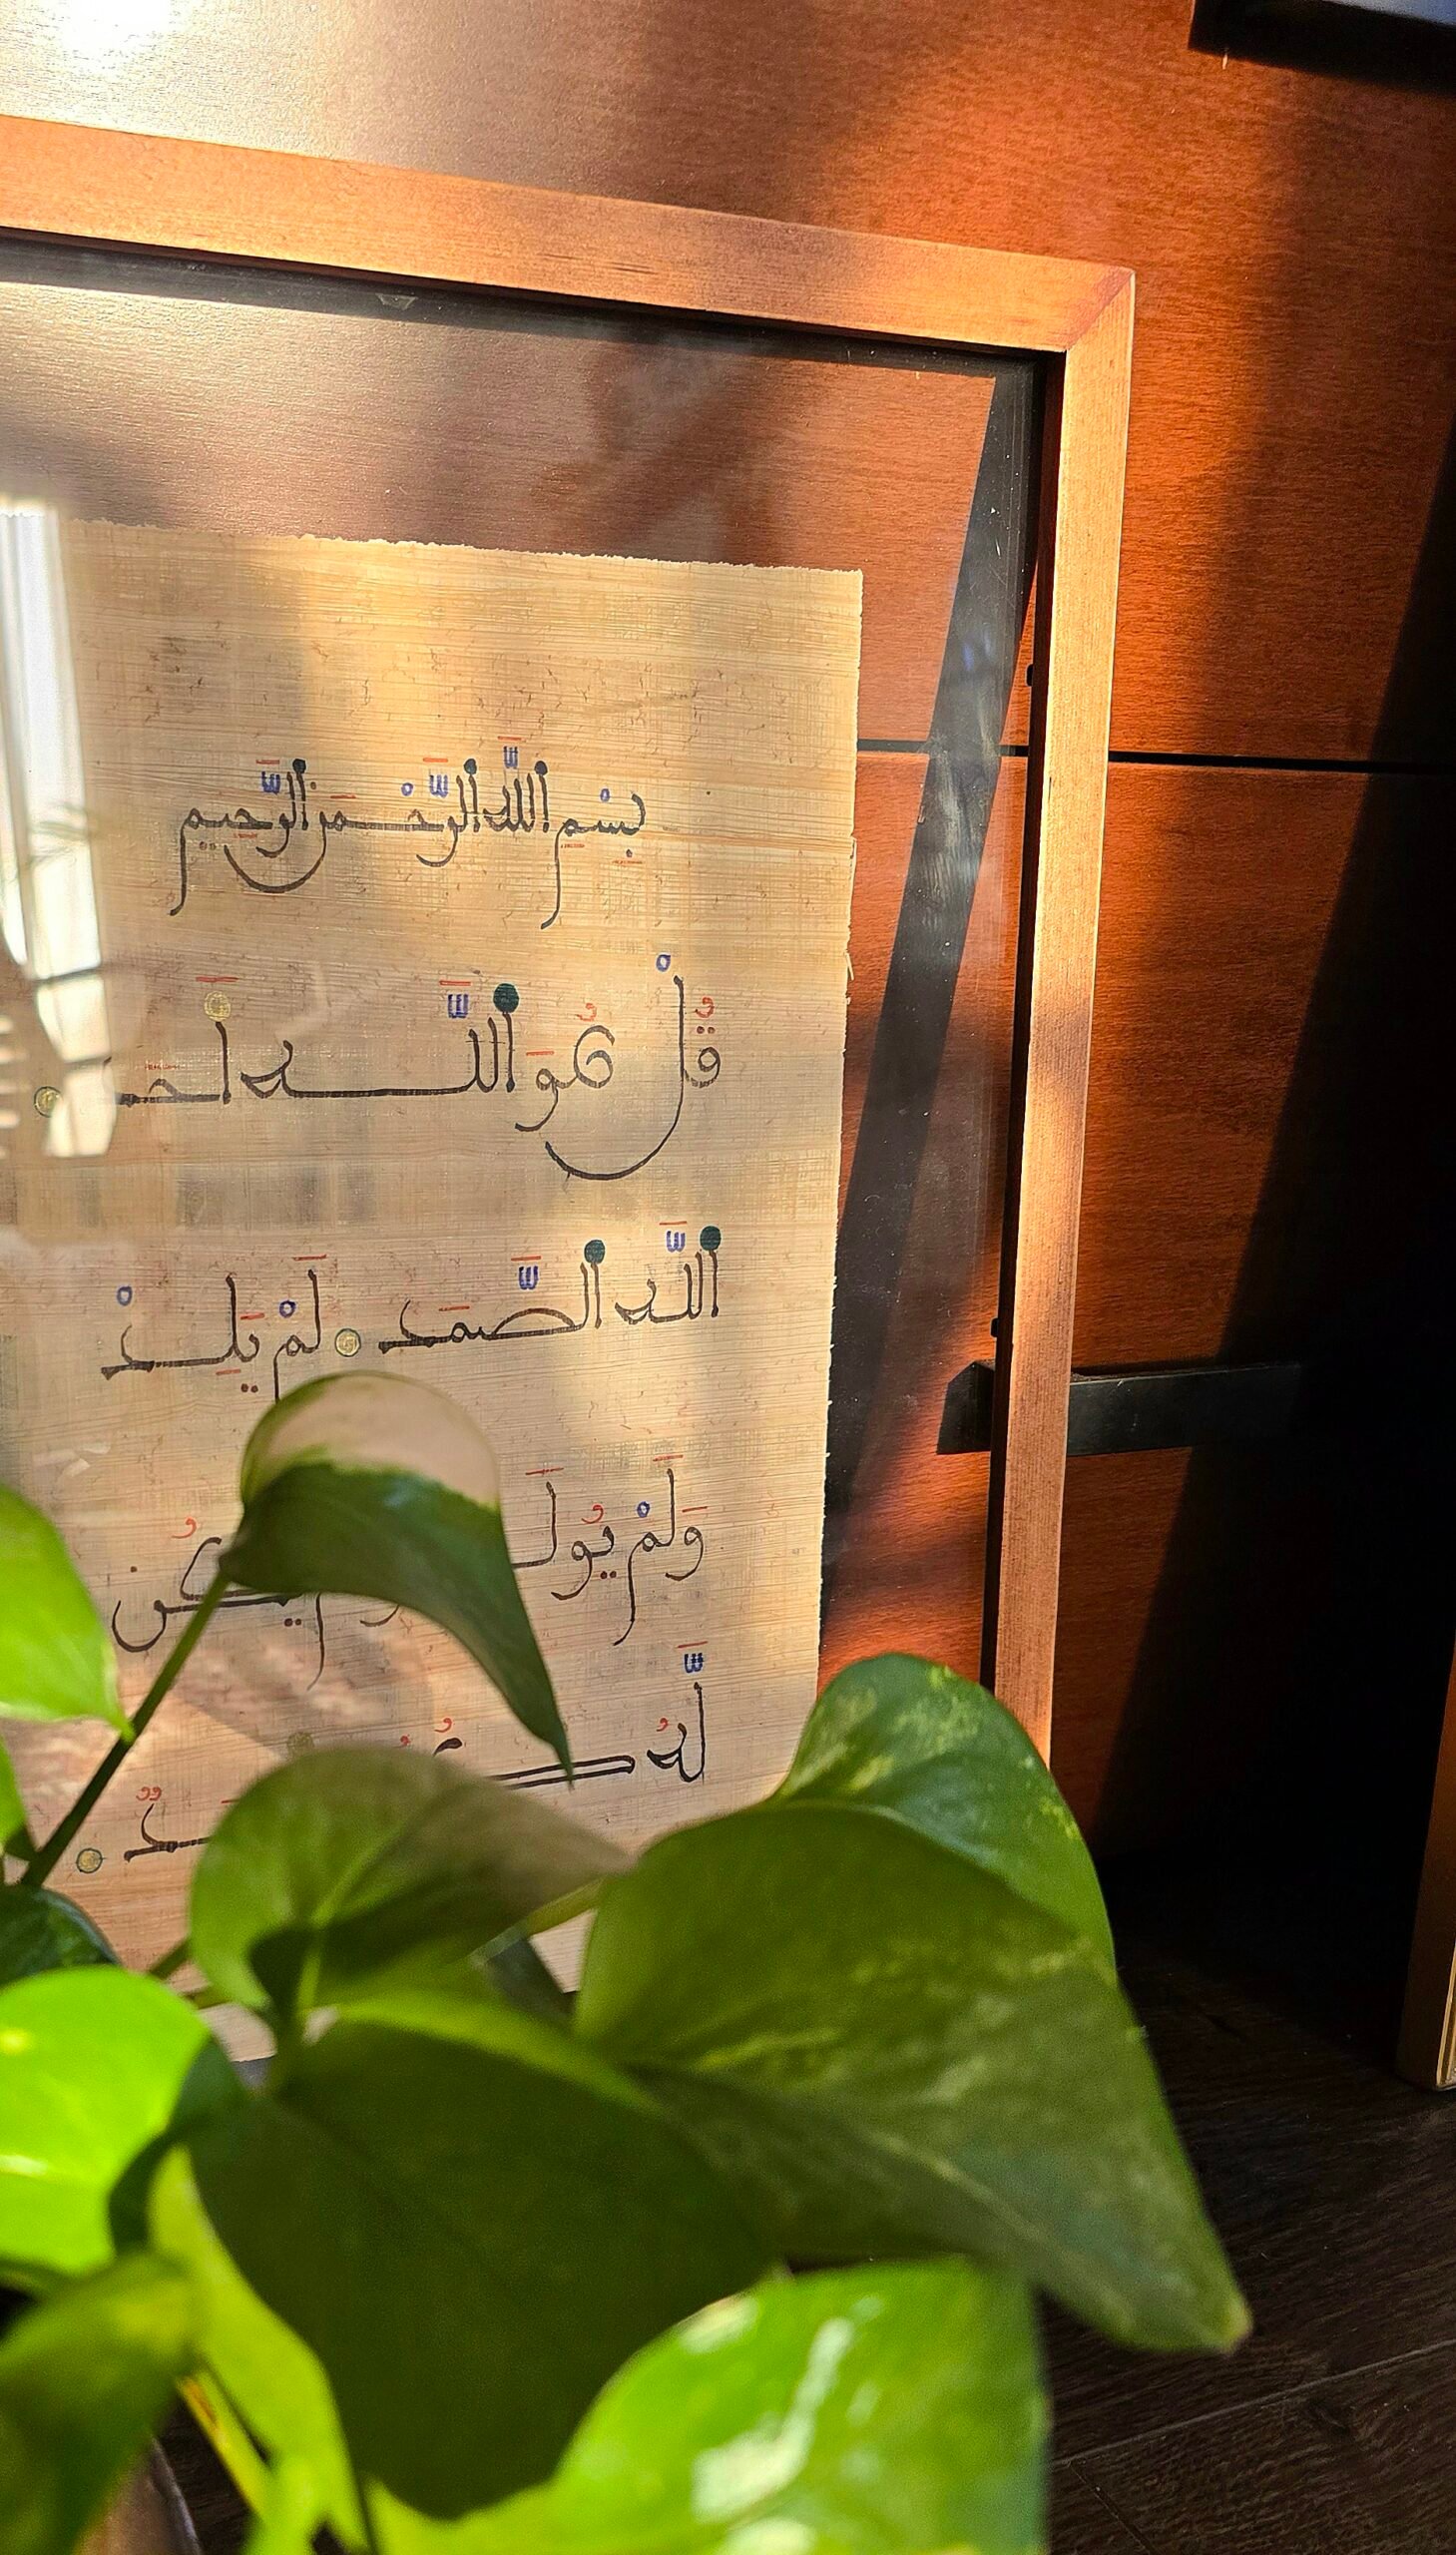 بِسْمِ اللَّهِ الرَّحْمَنِ الرَّحِيمِ
قُلْ هُوَ اللَّه أَحَد
اللَّه الصَّمَد لَمْ يَلِدْ
وَلَمْ يُولَ يَكُن
لَّهُ